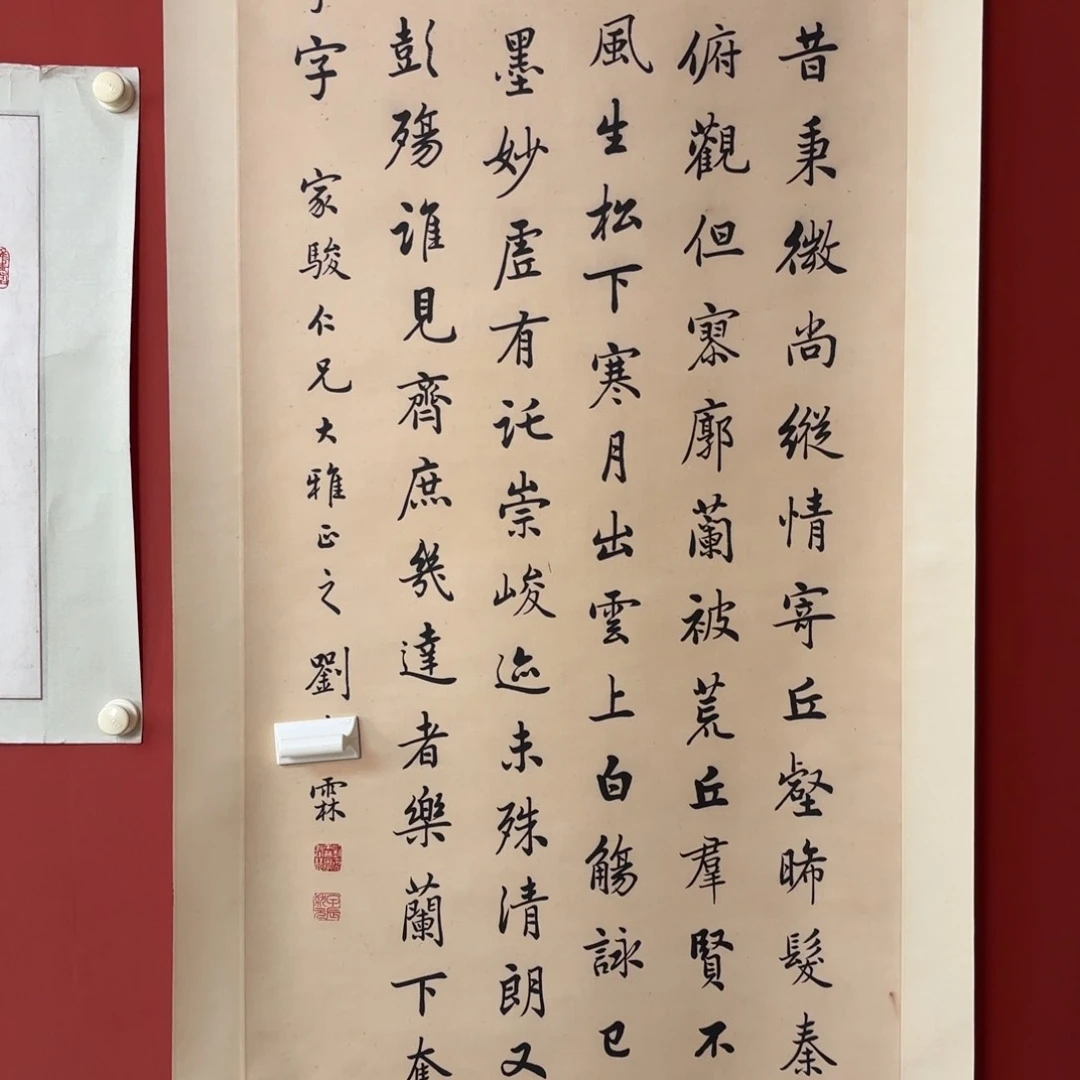 昔秉微尚縱情寄丘壑晞髮秦
俯觀但寥廓蘭被荒丘羣賢不
風生松下寒月出雲上白觴詠已
墨妙虗有託崇峻迹未殊清朗又
彭殤誰見齊庶幾達者樂蘭下
字 家駿仁兄大雅正之 劉 霖